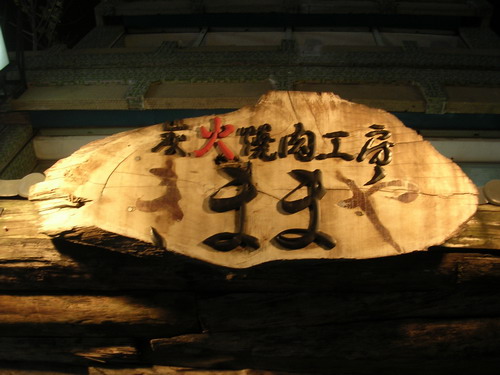 炭火焼肉工房
きままや